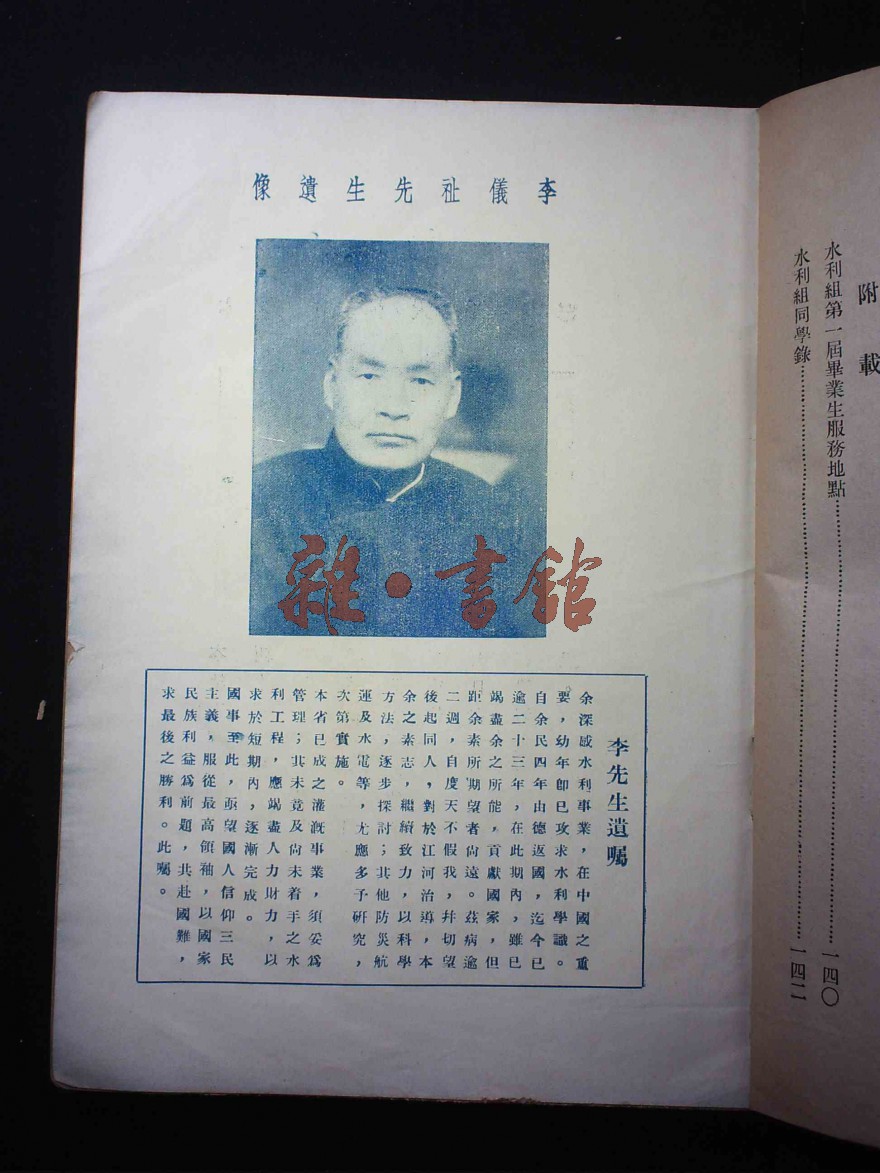 附載
水利組第一屆畢業生服務地點……一四〇
水利組同學錄……一四二
李儀祉先生遺像
雜·書館
李先生遺囑
余深感水利事業,在中國之重
要,幼年卽已攻求水利學識。
自余民四年由德返國,迄今已
逾二十三年,在此期內,雖已
竭盡余之所能,貢獻國家,但
距余素所期望者尙遠。茲病逾
二週,自度天不假我,幷切望
後起同人,對於江河治導,本
余之素志,繼續致力,以科學
方法,逐步探討;其他防災航
運及水電等,尤應多予硏究,
次第實施。
本省已成之灌漑事業,須妥爲
管理;其未竟及尙未着手之水
利工程,應竭盡人力財力,以
求於短期內,逐漸完成。
國事至此,亟望國人信仰三民
主義,服從最高領袖,以國家
民族利益爲前題,共赴國難,
求最後之勝利。此囑。